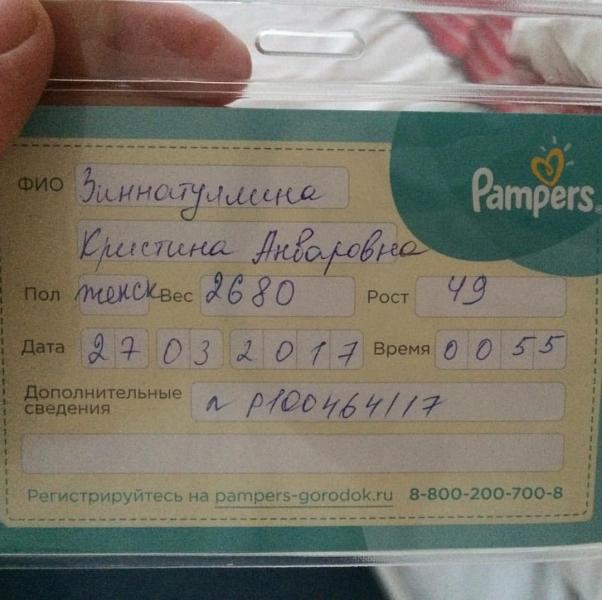 Pampers
ФИО Зиннатуллина
Кристина Анваровна
Пол женск Вес 2680 Рост 49
Дата 27 03 2017 Время 0055
Дополнительные сведения л Р100464117
Регистрируйтесь на pampers-gorodok.ru 8-800-200-700-8